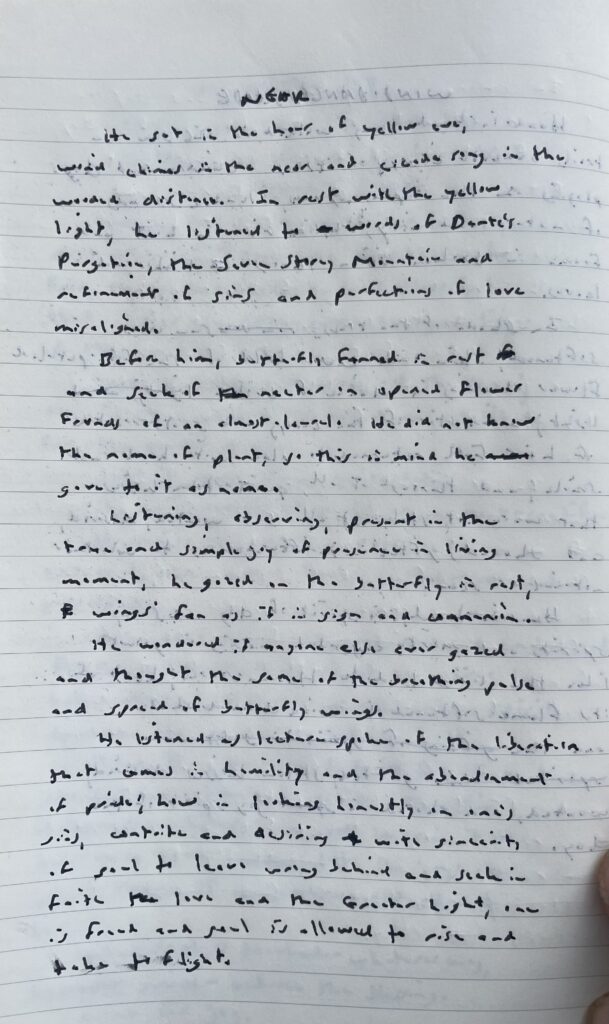 NEAR
He sat in the hour of yellow eve,
wind chimes in the near and cicada song in the
wooded distance. In rest with the yellow
light, he listened to words of Dante's
Purgatorio, the Seven Storey Mountain and
refinement of sins and perfections of love
misaligned.
Before him, butterfly fanned in rest
and seek of nectar on opened flower
fronds of an almost-laurel. He did not know
the name of plant, so this in mind he
gave to it as name.
Listening, observing, present in the
time and simple joy of presence in living
moment, he gazed on the butterfly in rest,
wings' fan as if in sign and communion.
He wondered if anyone else ever gazed
and thought the same of the breathing pulse
and spread of butterfly wings.
He listened as lecture spoke of the liberation
that comes in humility and the abandonment
of pride; how in looking honestly on one's
sins, contrite and desiring with sincerity
of soul to leave wrong behind and seek in
faith the love and the Greater Light, one
is freed and soul is allowed to rise and
take to flight.